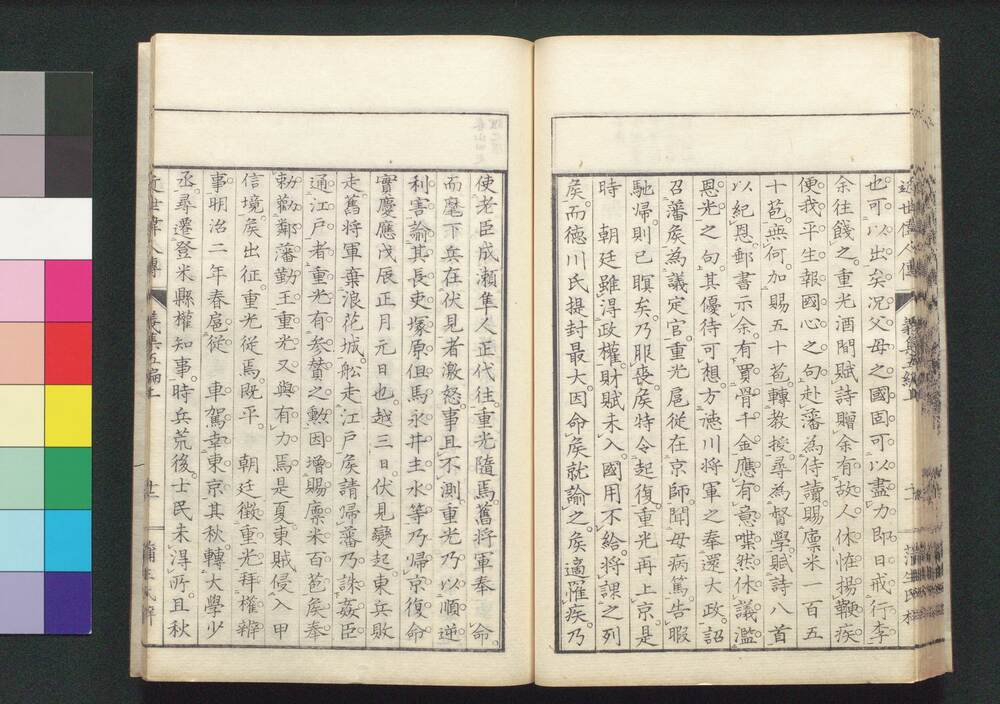 近世偉人傳 義集五編上 蒲生氏梓
也可以出矣况父母之國固可以盡力即日戒行李
余往餞之重光酒間賦詩贈余有故人休恠揚鞭疾
便我平生報國心之句赴藩為侍讀賜廩米一百五
十苞無何加賜五十苞轉教授尋為督學賦詩八首
以紀恩郵書示余有買骨千金應有意喋然休議濫
恩光之句其優待可想方德川將軍之奉還大政詔
召藩矦為議定官重光扈從在京師聞母病篤告暇
馳歸則已瞑矣乃服喪矦特令起復重光再上京是
時 朝廷雖得政權財賦未入國用不給將課之列
矦而德川氏提封最大因命矦就諭之矦適罹疾乃
使老臣成瀬隼人正代往重光隨焉舊將軍奉 命
而麾下兵在伏見者激怒事且不測重光乃以順逆
利害諭其長吏塚原但馬永井主水等乃歸京復命
實慶應戊辰正月元日也越三日伏見變起東兵敗
走舊將軍棄浪花城船走江戸矦請歸藩乃誅姦臣
通江戸者重光有參贊之勲因增賜廩米百苞矦奉
勅勸鄰藩勤王重光又與有力焉是夏東賊侵入甲
信境矦出征重光從焉既平 朝廷徵重光拜權辨
事明治二年春扈從 車駕幸東京其秋轉大學少
丞尋遷登米縣權知事時兵荒後士民未得所且秋
近世偉人傳 義集五編上 十一 蒲生氏梓